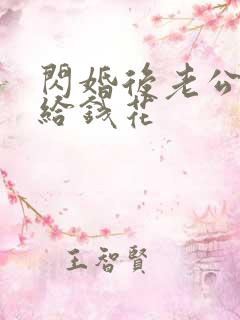 閃婚後老公
給錢花
王智賢